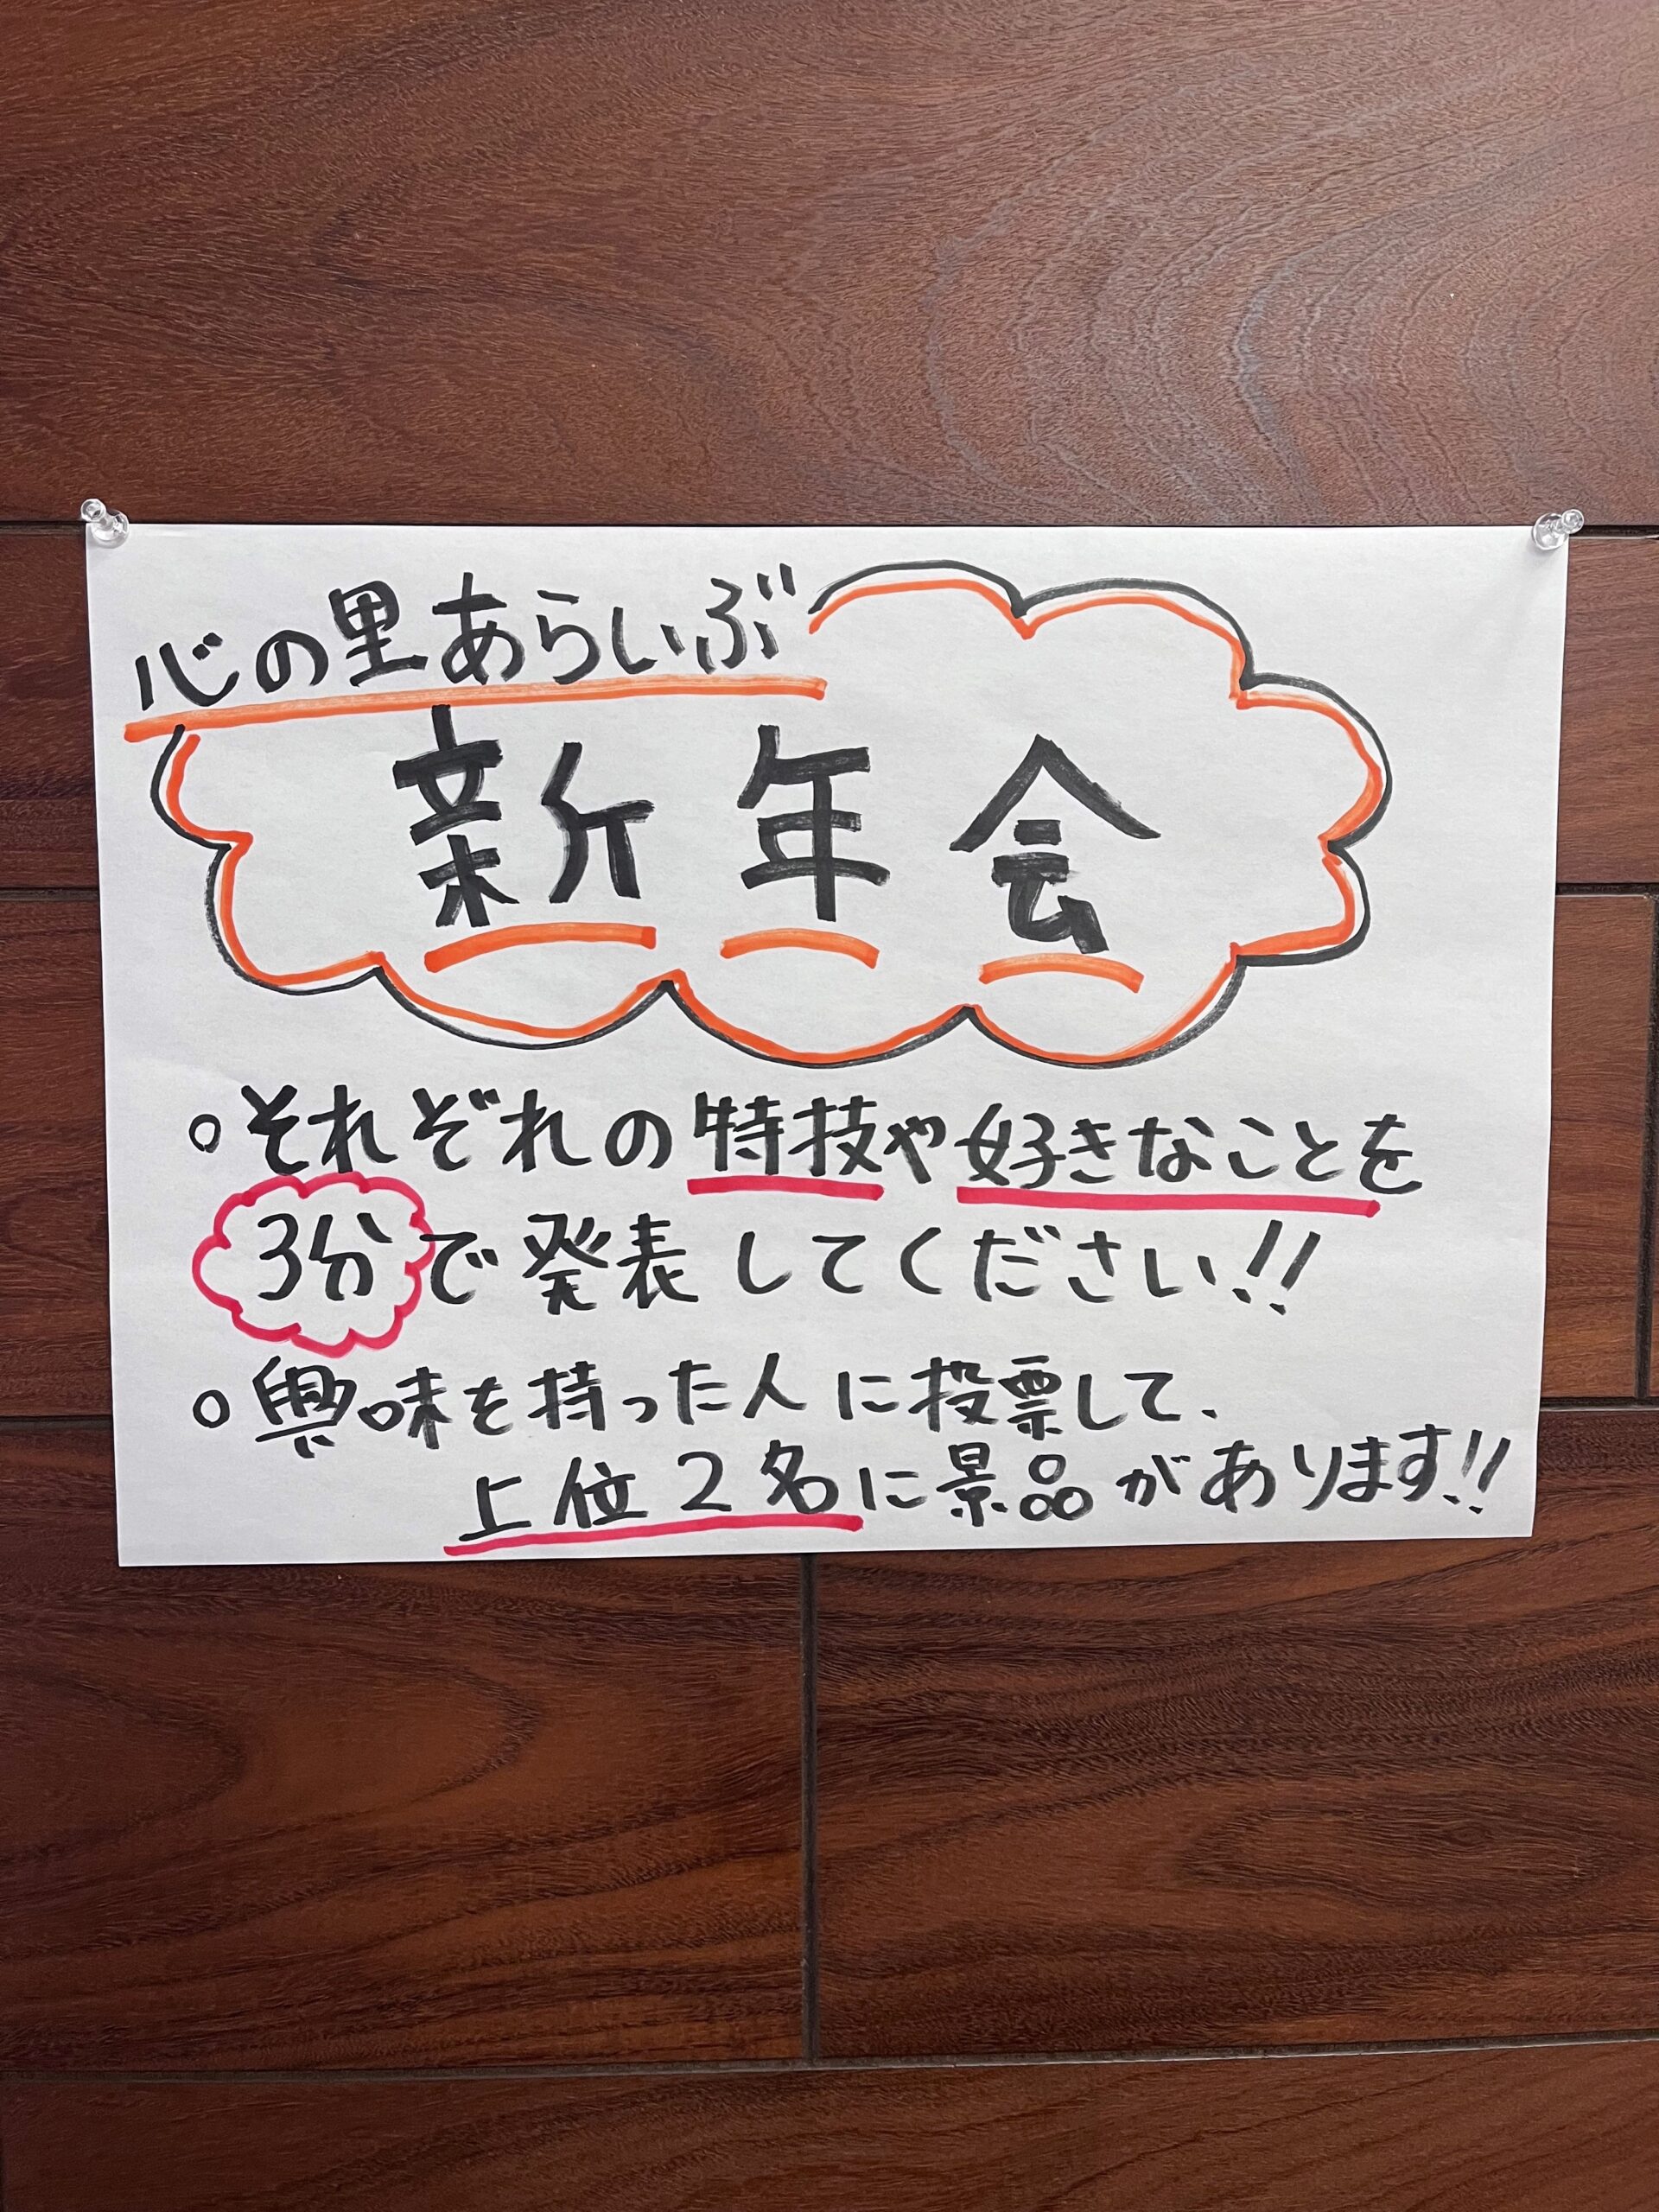 心の里あらいぶ
新年会
○それぞれの特技や好きなことを
3分で発表してください!!
○興味を持った人に投票して、
上位2名に景品があります!!